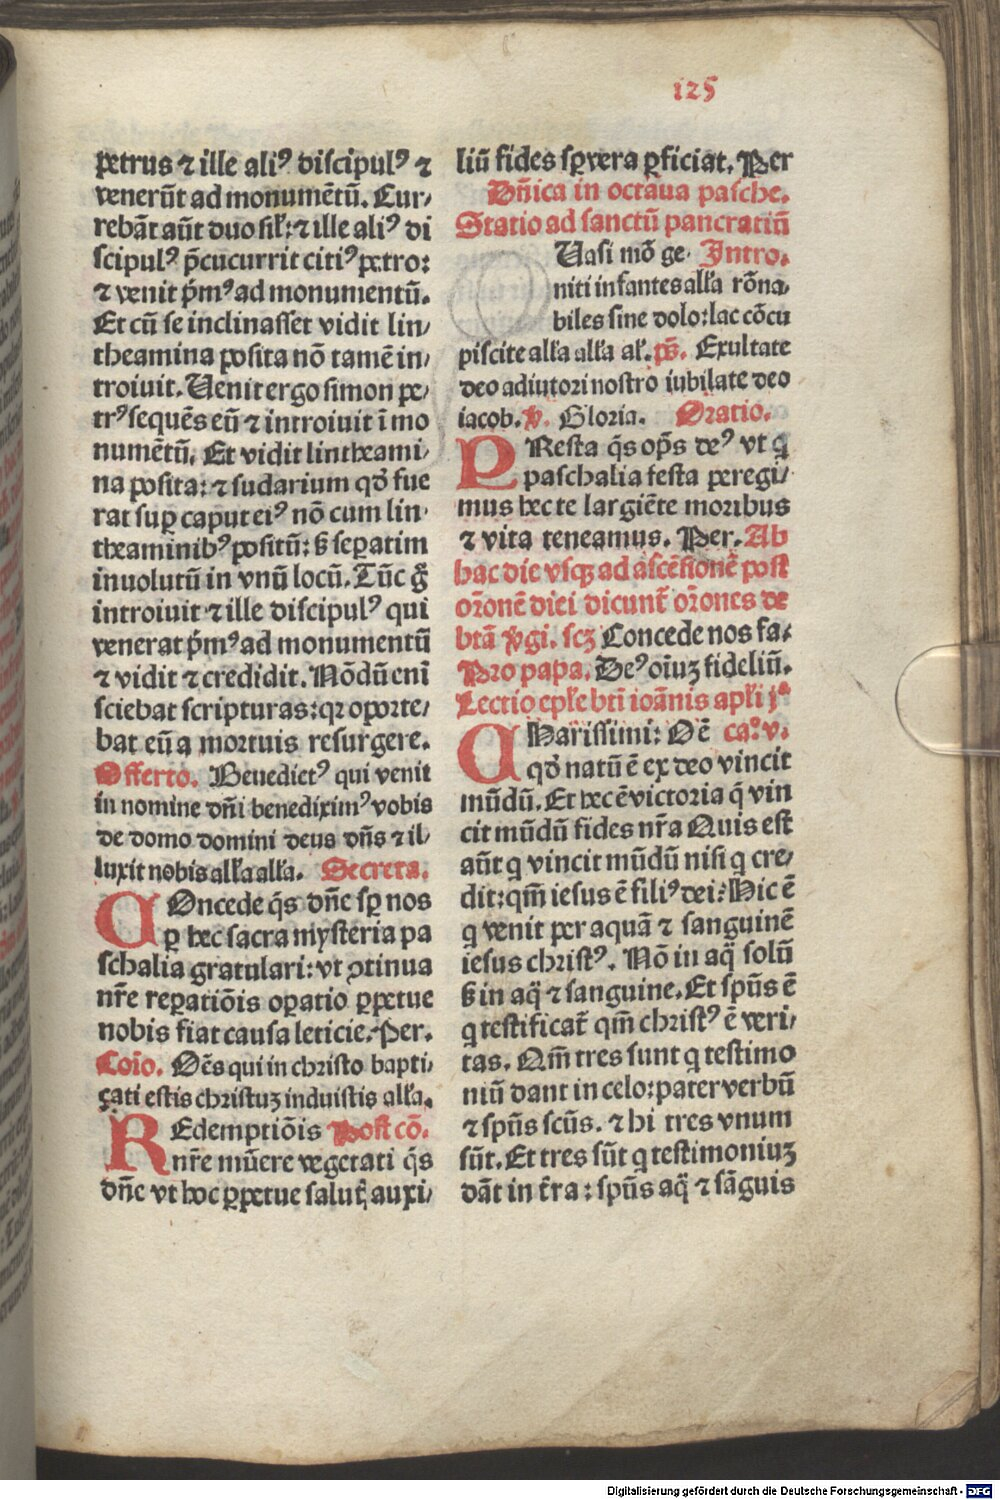 125
petrus ⁊ ille aliꝰ discipulꝰ ⁊
venerūt ad monumētū. Cur/
rebāt aūt duo sil̓: ⁊ ille aliꝰ di
scipulꝰ p̄cucurrit citiꝰ petro:
⁊ venit p̄mꝰ ad monumentū.
Et cū se inclinasset vidit lin/
theamina posita nō tamē in/
troiuit. Uenit ergo simon pe/
trꝰ sequēs eū ⁊ introiuit ī mo
numētū. Et vidit linteami/
na posita: ⁊ sudarium qd̄ fue
rat suꝑ caput eiꝰ nō cum lin/
theaminibꝰ positū: ß seꝑatim
inuolutū in vnū locū. Tūc g̊
introiuit ⁊ ille discipulꝰ qui
venerat p̄mꝰ ad monumentū
⁊ vidit ⁊ credidit. Nōdū eni̅
sciebat scripturas: qꝛ oporte/
bat eū a mortuis resurgere.
Offerto. Benedictꝰ qui venit
in nomine dn̄i benediximꝰ vobis
de domo domini deus dn̄s ⁊ il/
luxit nobis all̓a all̓a. Secreta.
COncede q̄s dn̄e sꝑ nos
ꝑ hec sacra mysteria pa
schalia gratulari: vt ꝯtinua
nr̄e reꝑatiōis oꝑatio ꝑpetue
nobis fiat causa leticie. Per.
Coīo. Oēs qui in christo bapti/
çati estis christuꝫ induistis all̓a.
REdemptiōis Post cō.
nr̄e mūere vegetati q̄s
dn̄e vt hoc ꝑpetue salut̓ auxi/
liū fides sꝑ vera ꝑficiat. Per
Dn̄ica in octaua pasche.
Statio ad sanctū pancratiū
Uasi mō ge Intro.
niti infantes all̓a rōna/
biles sine dolo: lac cōcu
piscite all̓a all̓a al̓. ps̄. Exultate
deo adiutori nostro iubilate deo
iacob. ℣. Gloria. Oratio.
PResta q̄s op̄s deꝰ vt q̇
paschalia festa peregi/
mus hec te largiēte moribus
⁊ vita teneamus. Per. Ab
hac die vsqꝫ ad ascēsionē post
or̄onē diei dicunt̄ or̄ones de
btā v̓gi. scꝫ Concede nos fa/
Pro papa. Deꝰ oīuꝫ fideliū.
Lectio epl̓e bti̅ ioānis apl̓i jᵃ
CHarissimi: Oē ca°. v.
qd̄ natū ē ex deo vincit
mūdū. Et hec ē victoria q̄ vin
cit mūdū fides nr̄a Quis est
aūt q̇ vincit mūdū nisi q̇ cre/
dit: qm̄ iesus ē filiꝰ dei? Hic ē
q̇ venit per aquā ⁊ sanguinē
iesus christꝰ. Nō in aq̄ solū
ß in aq̄ ⁊ sanguine. Et sp̄us ē
q̇ testificat̄ qm̄ christꝰ ē veri/
tas. Qm̄ tres sunt q̇ testimo
niū dant in celo: pater verbū
⁊ sp̄us scūs. ⁊ hi tres vnum
sūt. Et tres sūt q̇ testimoniuꝫ
dāt in t̄ra: sp̄us aq̄ ⁊ sāguis
Digitalisierung gefördert durch die Deutsche Forschungsgemeinschaft - DFG